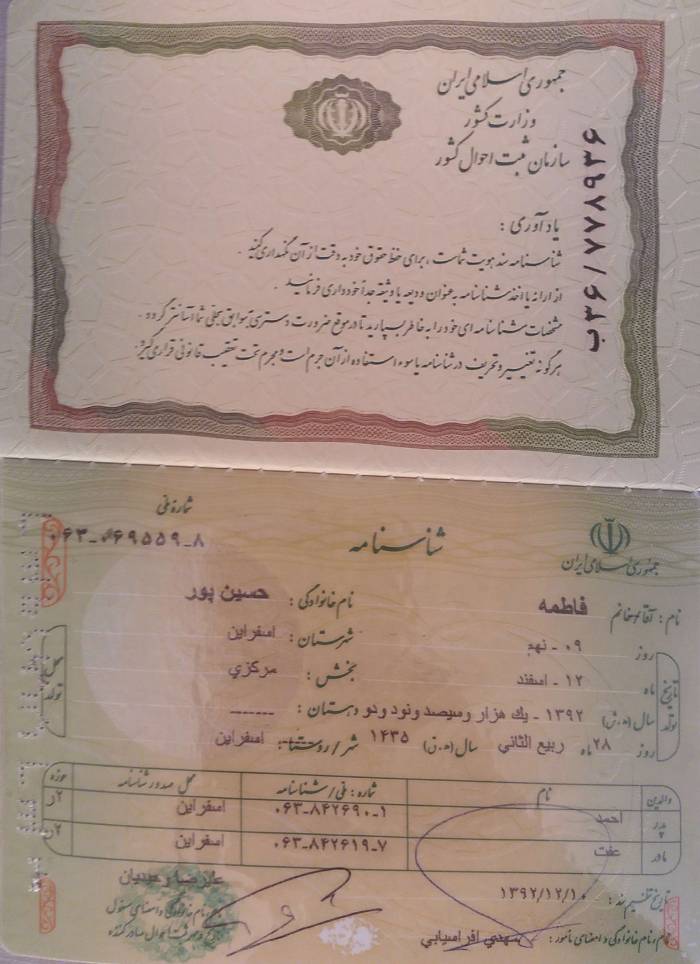 جمهوری اسلامی ایران
وزارت کشور
سازمان ثبت احوال کشور
ب۳۶/۷۷۸۹۳۶
یادآوری :
شناسنامه سند هویت شماست ، برای حفظ حقوق خود به دقت از آن نگهداری کنید .
از ارائه یا اخذ شناسنامه به عنوان ودیعه یا وثیقه جداً خودداری فرمائید .
مشخصات شناسنامه ای خود را به خاطر بسپارید تا در موقع ضرورت دسترسی به سوابق سجلی شما آسانتر گردد .
هرگونه تغییر و تحریف در شناسنامه یا سوء استفاده از آن جرم است و مجرم تحت تعقیب قانونی قرار می گیرد .
شماره ملی
جمهوری اسلامی ایران
شناسنامه
نام : آقا/خانم فاطمه نام خانوادگی : حسین پور
تاریخ تولد
روز ۰۹ - نهم شهرستان : اسفراین
ماه ۱۲ - اسفند بخش : مرکزي
سال (ه.ش) ۱۳۹۲ - يك هزار و سيصد و نود و دو دهستان : -------
روز ۲۸ ماه ربیع الثاني سال (ه.ق) ۱۴۳۵ شهر / روستا : اسفراین
محل تولد
والدین نام شماره : ملی / شناسنامه محل صدور شناسنامه حوزه
پدر احمد ۰۶۳-۸۴۲۶۹۰-۱ اسفراین ۲ر
مادر عفت ۰۶۳-۸۴۲۶۱۹-۷ اسفراین
تاریخ تنظیم سند : ۱۳۹۲/۱۲/۱۰
علیرضا وحیدیان
نام و نام خانوادگی و امضای مأمور : مهدي افراسیابي